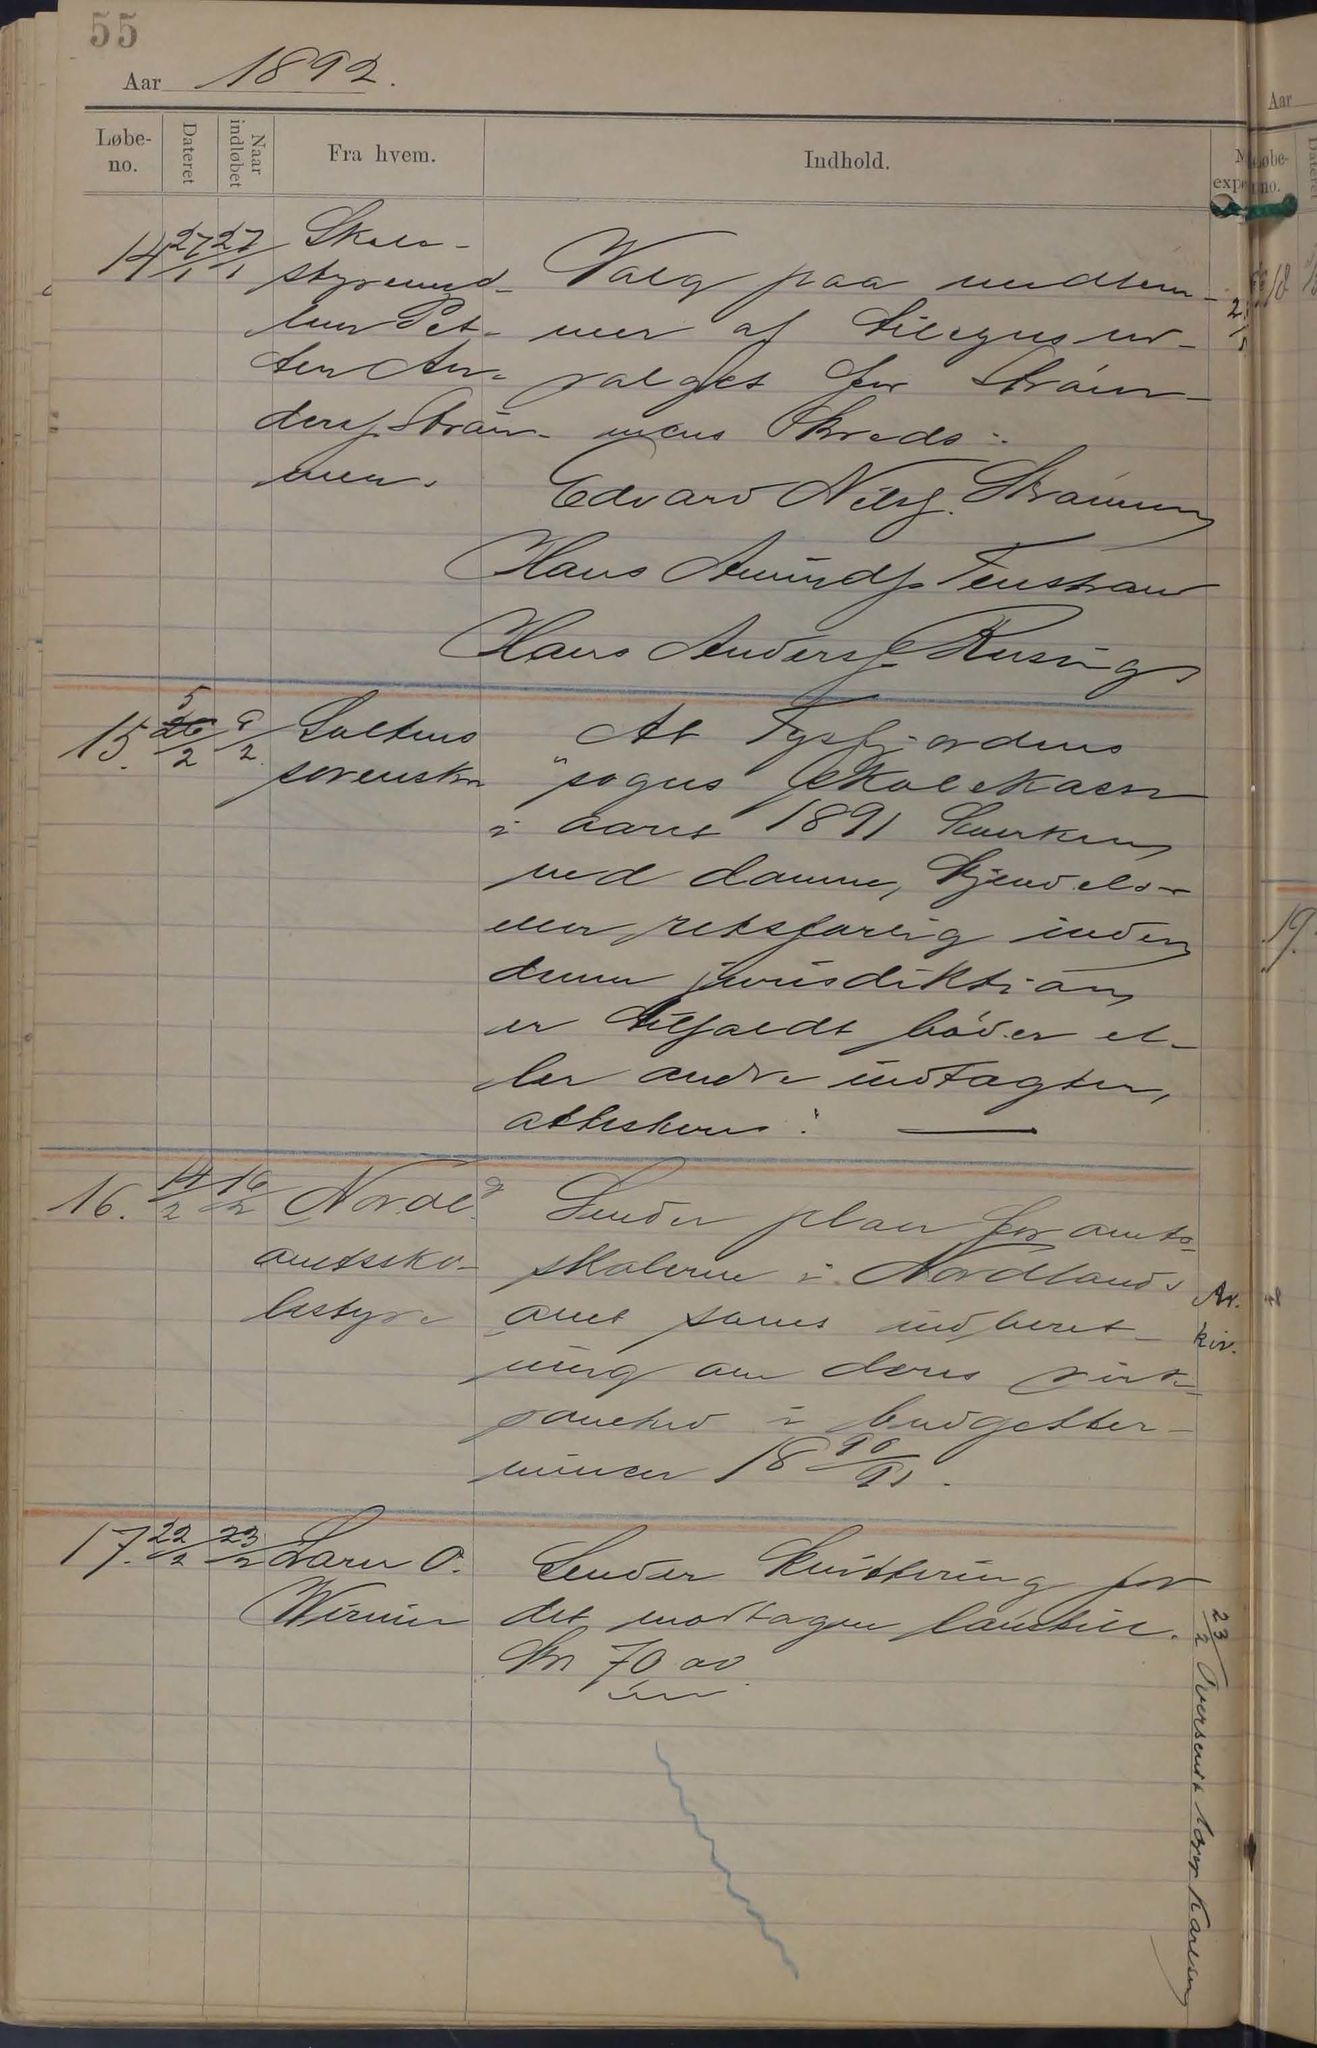 55
Aar 1892.
Løbe-no. Dateret Naar indløbet Fra hvem. Indhold.
14 27/1 27/1 Skole-
styremed-
lem Pet-
ter An-
ders. Strøm-
men.
Valg paa medlem-
mer af tilsynsud-
valget for Strøm-
mens Kreds:
Edvard Nilss. Strømmen
Hans Amunds.
Hans Anders.
15. 5/2 9/2 Saltens
sorenskr
At Tysfjordens
"sogns skolekasse
i aaret 1891 hverken
ved domme, kjendelse
eller retsforlig inden
denne jurisdiktion
er tilfaldt bøder el-
ler andre indtægter,
attesteres".
16. 14/2 16/2 Nordl.
amtssko-
lestyre
Sender plan for amts-
skolerne i Nordlands
amt samt indberet-
ning om deres virk-
somhed i budgetter-
minen 18 90/91.
Ar.
kiv.
17. 22/2 23/2 Lærer O.
Wirum
Sender kvittering for
det modtagne
Kr 70,00
23/2 Oversendt Karlsen
Aar
18
19.